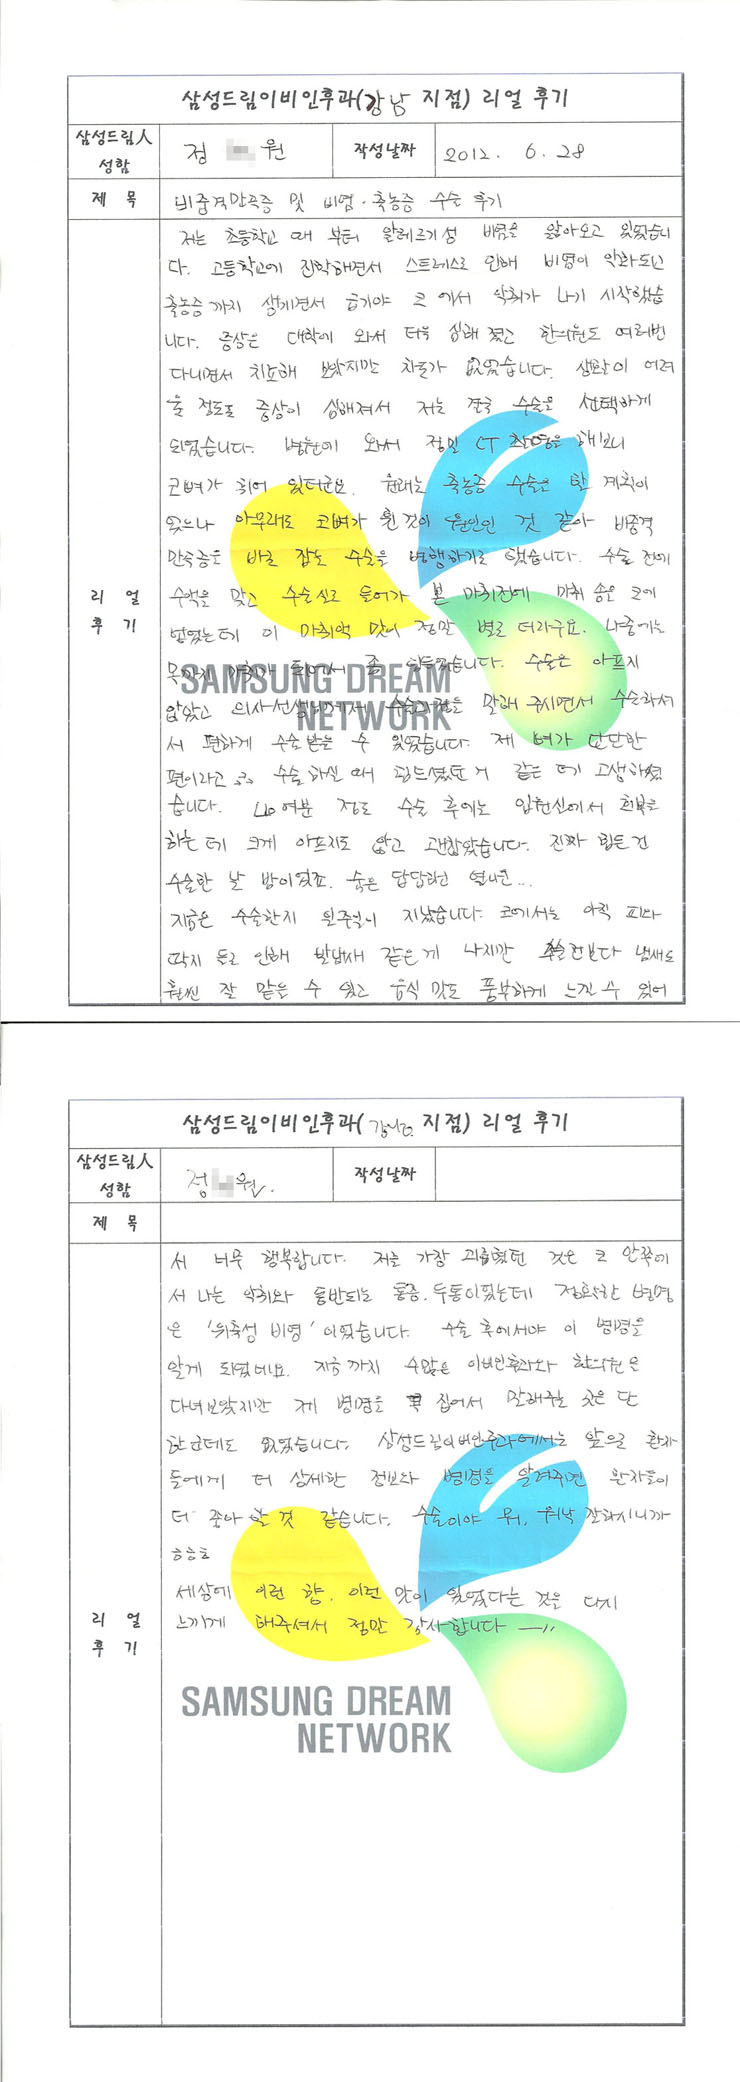 삼성드림이비인후과(강남 지점) 리얼 후기
삼성드림人 성함
정 원
작성날짜
2012. 6. 28
제 목
비중격만곡증 및 비염·축농증 수술 후기
리 얼 후 기
저는 초등학교 때 부터 알레르기성 비염을 앓아오고 있었습니
다. 고등학교에 진학하면서 스트레스로 인해 비염이 악화되고
축농증까지 생기면서 급기야 코에서 악취가 나기 시작했습
니다. 증상은 대학에 와서 더욱 심해졌고 한의원도 여러번
다니면서 치료해 보았지만 차도가 없었습니다. 생활이 어려
울 정도로 증상이 심해져서 저는 결국 수술을 선택하게
되었습니다. 병원에 와서 정밀 CT 촬영을 해보니
코뼈가 휘어 있더군요. 원래는 축농증 수술만 할 계획이
었으나 아무래도 코뼈가 휜것이 원인인 것 같아 비중격
만곡증을 바로 잡는 수술을 병행하기로 했습니다. 수술 전에
수액을 맞고 수술실로 들어가 본 마취전에 마취 솜을 코에
넣었는데 이 마취약 맛이 정말 별로 더라구요. 나중에는
목까지 마취가 되어서 좀 힘들었습니다. 수술은 아프지
않았고 의사선생님께서 수술과정을 말해 주시면서 수술하셔
서 편하게 수술받을 수 있었습니다. 제 뼈가 단단한
편이라고 ㅎㅎ 수술하실 때 힘드셨던 거 같은데 고생하셨
습니다. 40여분 정도 수술 후에는 입원실에서 회복을
하는데 크게 아프지도 않고 괜찮았습니다. 진짜 힘든건
수술한 날 밤이었죠. 숨은 답답하고 열나고...
지금은 수술한지 일주일이 지났습니다. 코에서는 아직 피와
딱지 등로 인해 발냄새 같은게 나지만 수술전보다 냄새도
훨씬 잘 맡을 수 있고 음식 맛도 풍부하게 느낄 수 있어
삼성드림이비인후과(강남 지점) 리얼 후기
삼성드림人 성함
정 원.
작성날짜
제 목
리 얼 후 기
서 너무 행복합니다. 저를 가장 괴롭혔던 것은 코 안쪽에
서 나는 악취와 동반되는 통증. 두통이었는데 정확한 병명
은 '위축성 비염' 이었습니다. 수술 후에서야 이 병명을
알게 되었네요. 지금까지 수많은 이비인후과와 한의원을
다녀보았지만 제 병명을 콕 집어서 말해주는 곳은 단
한군데도 없었습니다. 삼성드림이비인후과에서는 앞으로 환자
들에게 더 상세한 정보와 병명을 알려주면 환자들이
더 좋아 할 것 같습니다. 수술이야 뭐, 워낙 잘하시니까
ㅎㅎㅎ
세상에 이런 향, 이런 맛이 있었다는 것을 다시
느끼게 해주셔서 정말 감사합니다
SAMSUNG DREAM
NETWORK
SAMSUNG DREAM
NETWORK